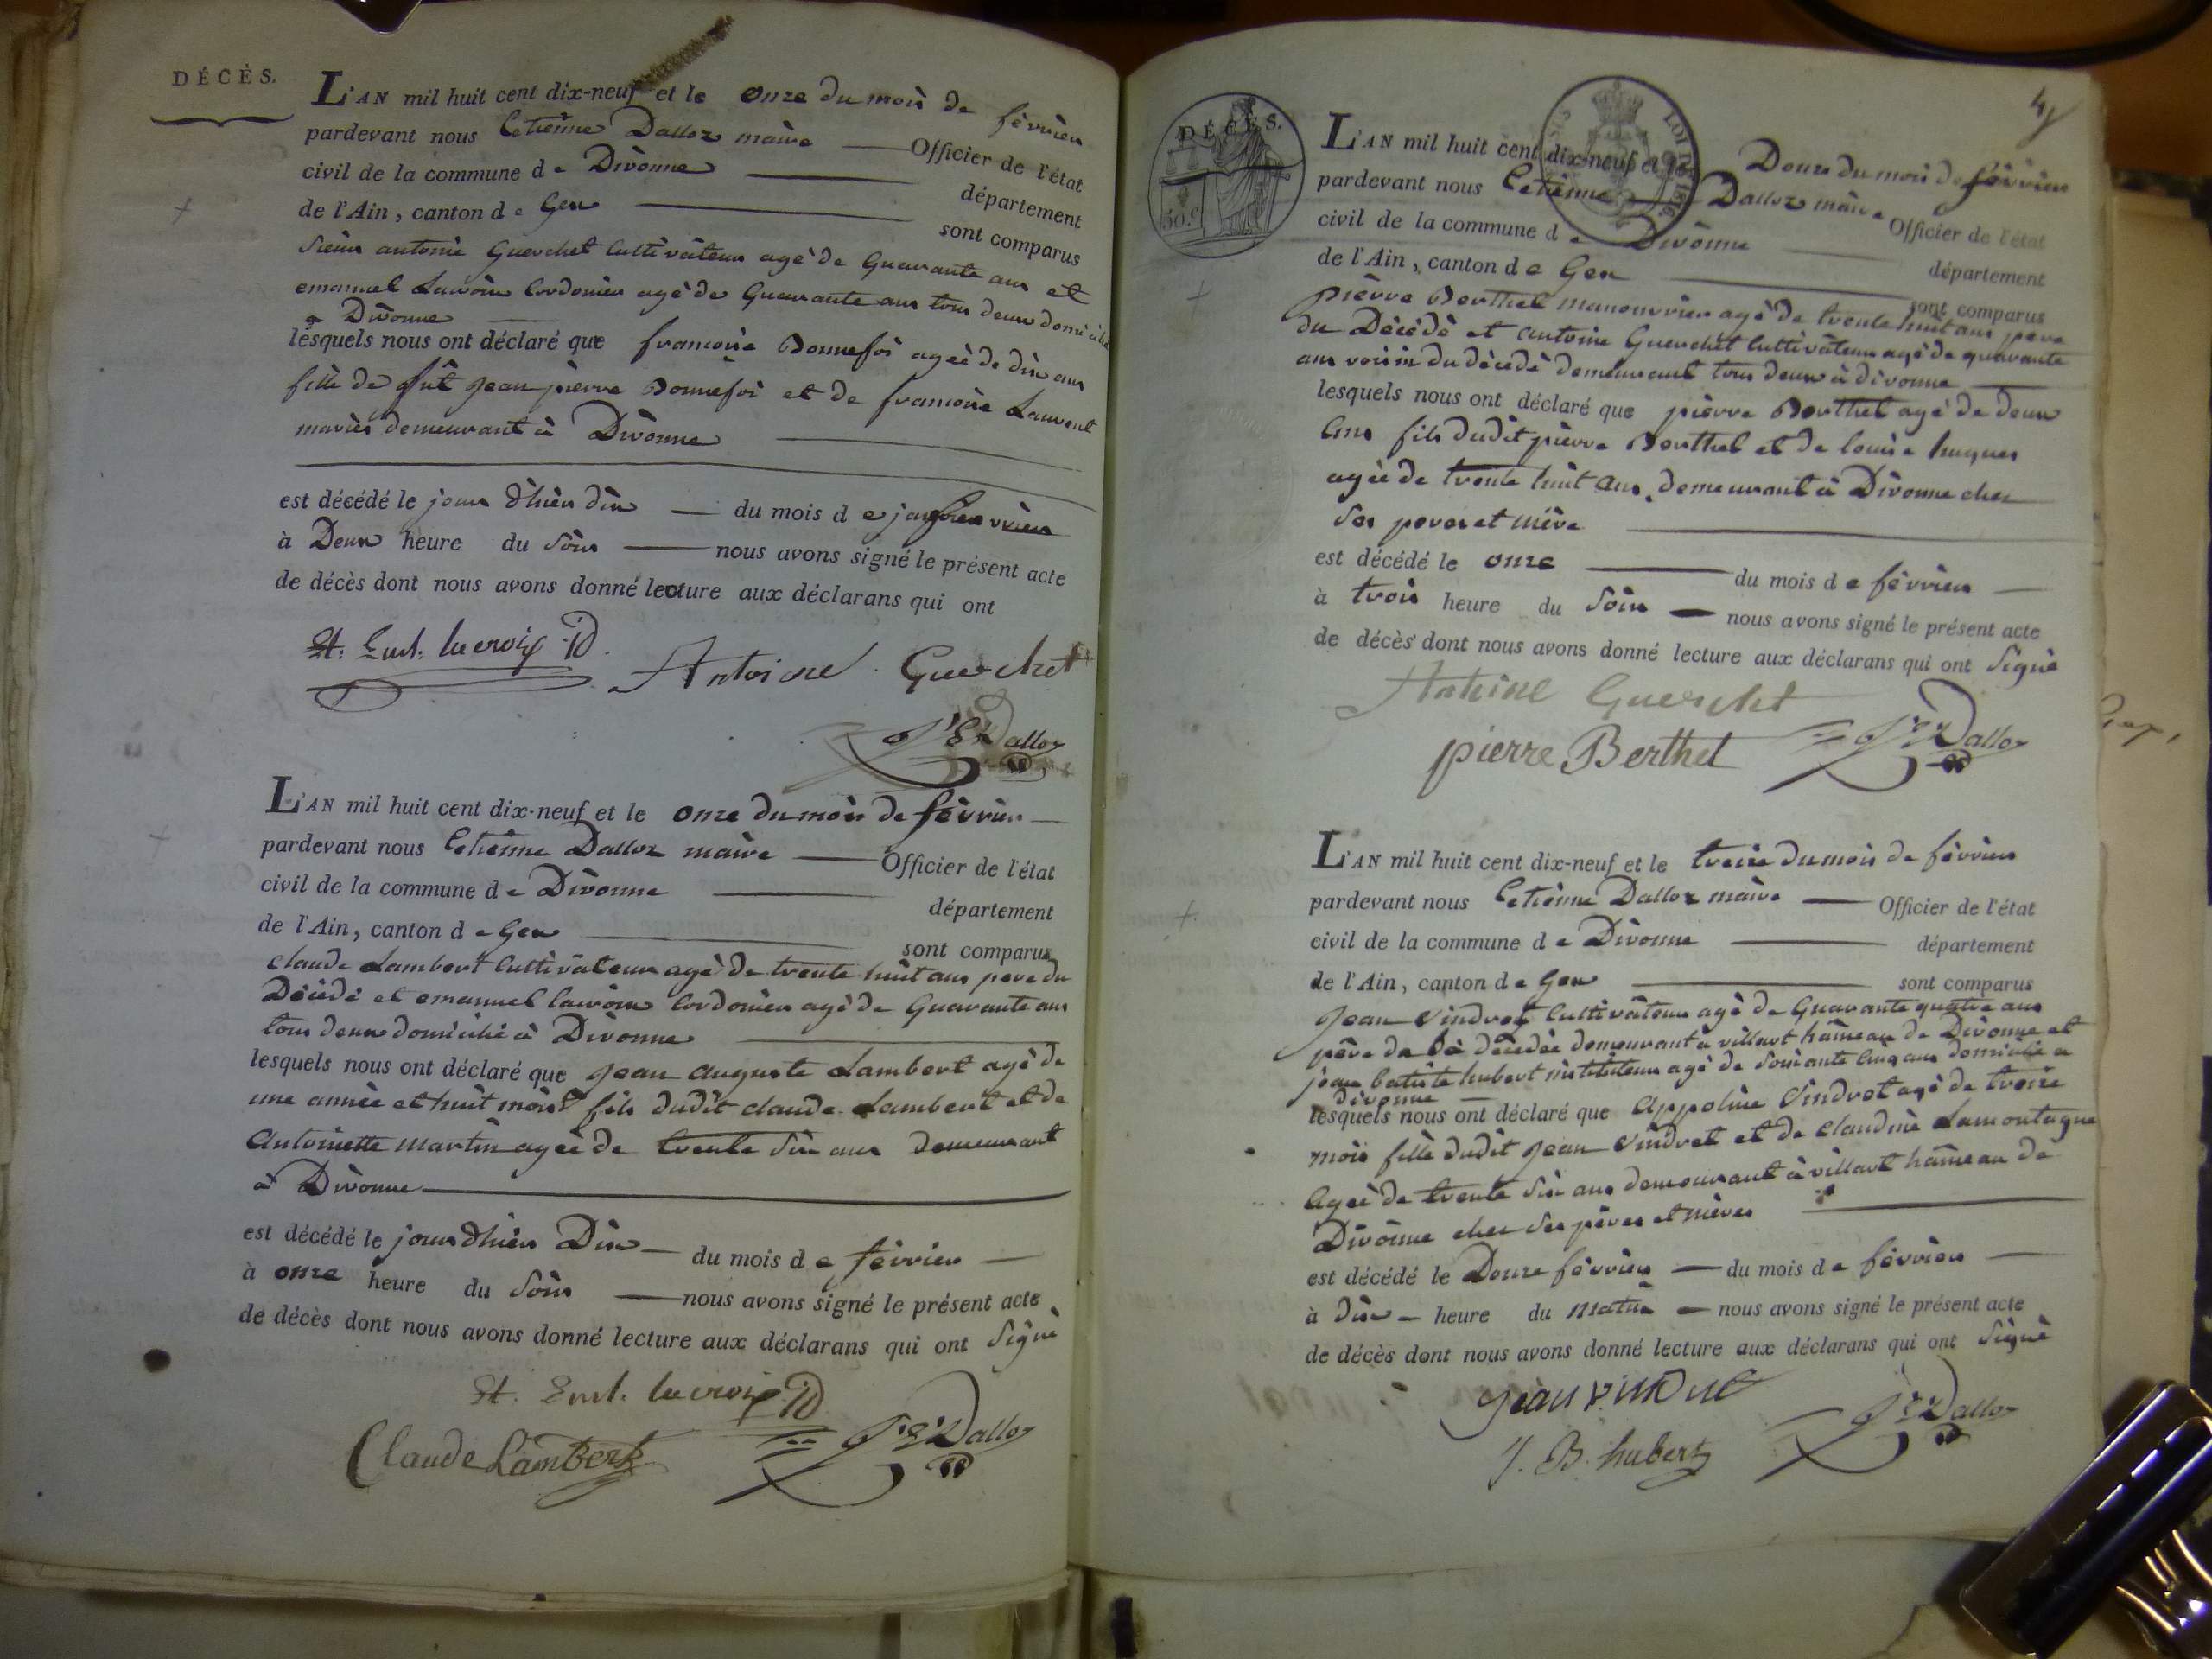 DÉCÈS.
L'AN mil huit cent dix-neuf et le onze du mois de fèvrièr
pardevant nous Etiènne Dalloz maire — Officier de l'état
civil de la commune de Divonne — département
de l'Ain, canton de Gex — sont comparus
Sieur antoine Guerchet Cultivateur agé de Quarante ans et
emanuel Lacroix Cordonier agé de Quarante ans tous deux domicilié
a Divonne —
lesquels nous ont déclaré que francoise Bonnefoi ageè de dix ans
fille de fut Jean pierre Bonnefoi et de francoise Laurent
mariès demeurant à Divonne —
est décédé le jour d'hièr dix — du mois de fevrièr
à Deux heure du Soir — nous avons signé le présent acte
de décès dont nous avons donné lecture aux déclarans qui ont
Eml. lacroix
Antoine Guerchet
Dalloz
L'AN mil huit cent dix-neuf et le onze du mois de fèvrièr —
pardevant nous Etiènne Dalloz maire — Officier de l'état
civil de la commune de Divonne — département
de l'Ain, canton de Gex — sont comparus
Claude Lambert Cultivateur agè de trente huit ans pere du
Dècèdé et emanuel lacroix Cordonier agè de Quarante ans
tous deux domicilié à Divonne —
lesquels nous ont déclaré que Jean auguste Lambert agè de
une annèe et huit mois fils dudit claude Lambert et de
Antoinette Martin ageè de trente Six ans demeurant
à Divonne —
est décédé le jour d'hièr Dix — du mois de fèvrièr —
à onze heure du Soir — nous avons signé le présent acte
de décès dont nous avons donné lecture aux déclarans qui ont Signè
Eml. lacroix
Claude Lambert
Dalloz
4
DÉCÈS.
50.c
LOI DE 1816
L'AN mil huit cent dix-neuf et le Douze du mois de fèvrièr
pardevant nous Etiènne Dalloz maire Officier de l'état
civil de la commune de Divonne — département
de l'Ain, canton de Gex — sont comparus
pièrre Berthet manouvrier agè de trente huit ans pere
du Dècèdè et antoine Guerchet Cultivateur agè de quarante
ans voisin du dècèdè demeurant tous deux à divonne —
lesquels nous ont déclaré que pièrre Berthet agè de deux
Ans fils dudit pièrre Berthet et de louise hugues
ageè de trente huit ans, demeurant à Divonne chez
Ses peres et mère —
est décédé le onze — du mois de fèvrièr —
à trois heure du Soir — nous avons signé le présent acte
de décès dont nous avons donné lecture aux déclarans qui ont Signè
Antoine Guerchet
pierre Berthet
Dalloz
L'AN mil huit cent dix-neuf et le treize du mois de fèvrièr
pardevant nous Etiènne Dalloz maire — Officier de l'état
civil de la commune de Divonne — département
de l'Ain, canton de Gex — sont comparus
Jean Vindret Cultivateur agè de Quarante quatre ans
pére de la dècèdèe demeurant à villart hâmeau de Divonne et
jean batiste hubert instituteur agè de Soixante Cinq ans domicilié a
divonne —
lesquels nous ont déclaré que Appoline Vindret agè de treize
mois fille dudit Jean Vindret et de Claudine Lamontagne
Ageè de trente Six ans demeurant à villart hâmeau de
Divonne chez Ses péres et mères —
est décédé le Douze fèvrièr — du mois de fèvrièr —
à dix — heure du matin — nous avons signé le présent acte
de décès dont nous avons donné lecture aux déclarans qui ont Signè
Jean Vindret
J. B. hubert
Dalloz